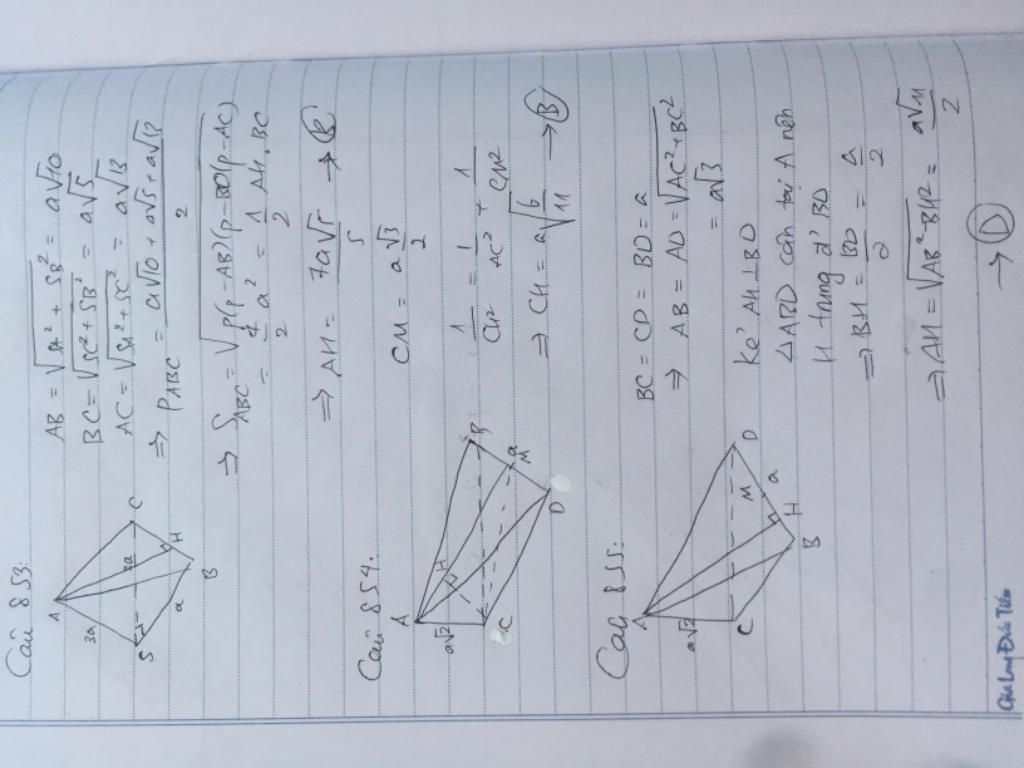 Câu 853:
A
3a
S
2a
C
H
a
B
AB = √(SA² + SB²) = a√10
BC = √(SC² + SB²) = a√5
AC = √(SA² + SC²) = a√13
⇒ P_ABC = (a√10 + a√5 + a√13)/2
⇒ S_ABC = √(p(p-AB)(p-BC)(p-AC))
= 7/2 a² = 1/2 AH.BC
⇒ AH = 7a√5/5 →
Câu 854.
A
a√2
H
C
B
a
M
D
CM = a√3/2
1/CH² = 1/AC² + 1/CM²
⇒ CH = a√(6/11) → B
Câu 855:
A
a√2
C
D
M
a
H
B
BC = CD = BD = a
⇒ AB = AD = √(AC² + BC²)
= a√3
Kẻ AH ⊥ BD
△ABD cân tại A nên
H trung đ' BD
⇒ BH = BD/2 = a/2
⇒ AH = √(AB² - BH²) = a√11/2
→ D